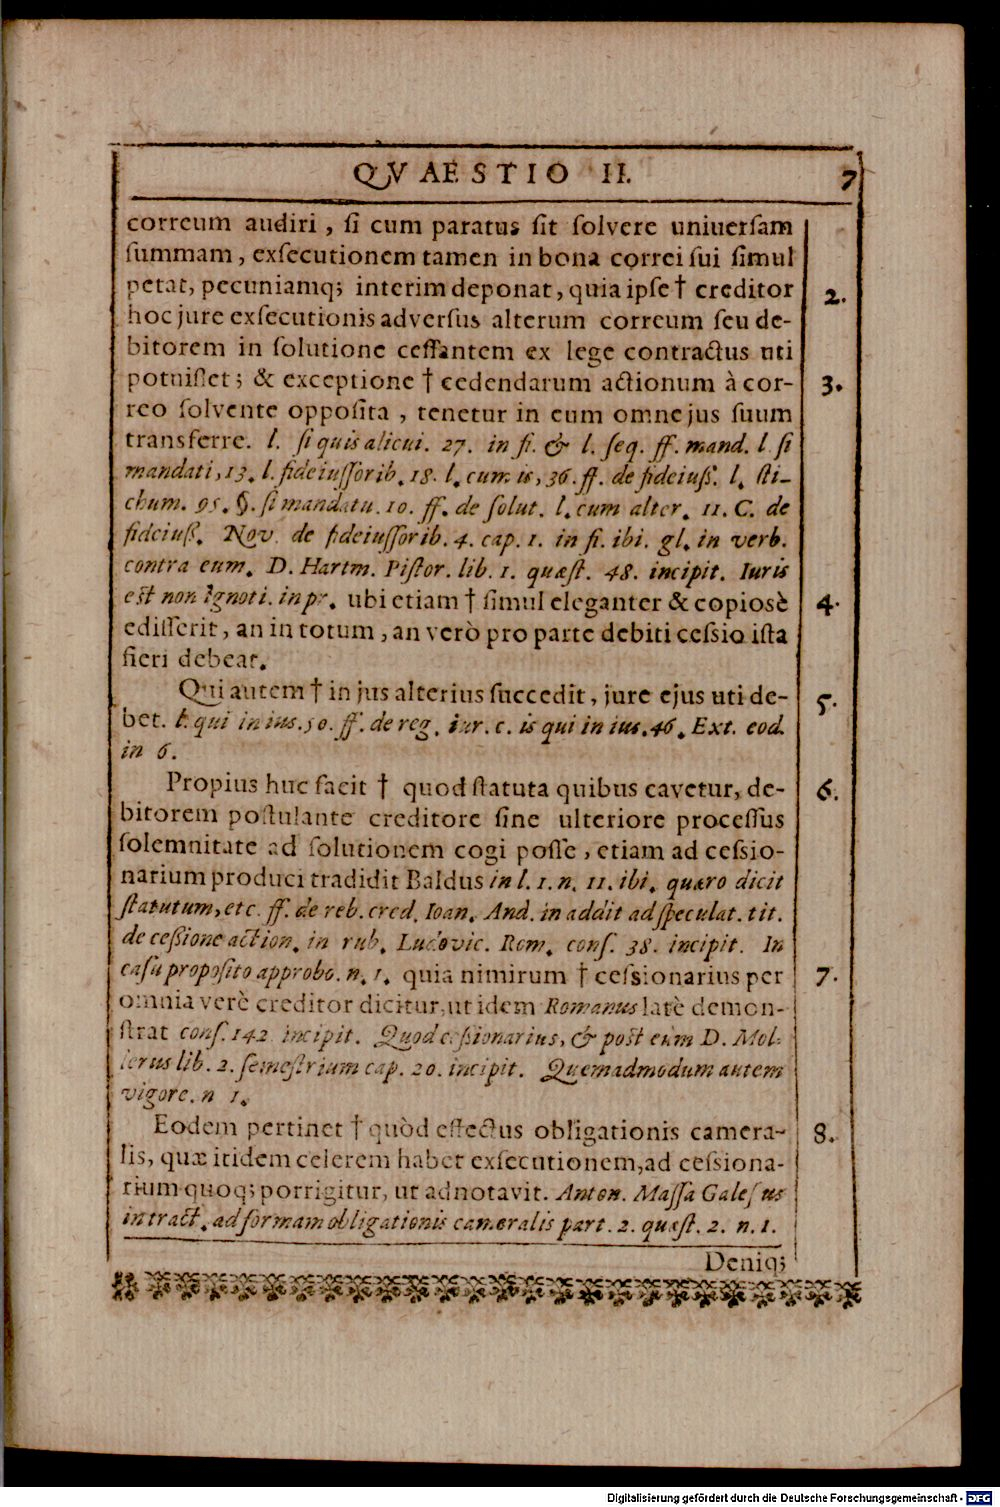 QVAESTIO II. 7
correum audiri, ſi cum paratus ſit ſolvere univerſam
ſummam, exſecutionem tamen in bona correi ſui ſimul
petat, pecuniamq; interim deponat, quia ipſe † creditor 2.
hoc jure exſecutionis adverſus alterum correum ſeu de-
bitorem in ſolutione ceſſantem ex lege contractus uti
potuiſſet; & exceptione † cedendarum actionum à cor- 3.
reo ſolvente oppoſita, tenetur in eum omne jus ſuum
transferre. l. ſi quis alicui. 27. in fi. & l. ſeq. ff. mand. l. ſi
mandati, 13. l. fideiuſſorib. 18. l. cum is, 36. ff. de fideiuß. l. ſti-
chum. 95. §. ſi mandatu. 10. ff. de ſolut. l. cum alter. 11. C. de
fideiuß. Nov. de fideiuſſorib. 4. cap. 1. in fi. ibi. gl. in verb.
contra eum. D. Hartm. Piſtor. lib. 1. quæſt. 48. incipit. Iuris
est non ignoti. in pr. ubi etiam † ſimul eleganter & copiosè 4.
ediſſerit, an in totum, an verò pro parte debiti ceſsio iſta
fieri debeat.
Qui autem † in jus alterius ſuccedit, jure ejus uti de- 5.
bet. l. qui in ius. 50. ff. de reg. iur. c. is qui in ius. 46. Ext. eod.
in 6.
Propius huc facit † quod ſtatuta quibus cavetur, de- 6.
bitorem poſtulante creditore ſine ulteriore proceſſus
ſolemnitate ad ſolutionem cogi poſſe, etiam ad ceſsio-
narium produci tradidit Baldus in l. 1. n. 11. ibi. quæro dicit
ſtatutum, etc. ff. de reb. cred. Ioan. And. in addit ad ſpeculat. tit.
de ceßione action. in rub. Ludovic. Rom. conſ. 38. incipit. In
caſu propoſito approbo. n. 1. quia nimirum † ceſsionarius per 7.
omnia verè creditor dicitur, ut idem Romanus latè demon-
ſtrat conſ. 142 incipit. Quod ceßionarius, & poſt eum D. Mol-
lerus lib. 2. ſemeſtrium cap. 20. incipit. Quemadmodum autem
vigore. n 1.
Eodem pertinet † quòd effectus obligationis camera- 8.
lis, quæ itidem celerem habet exſecutionem, ad ceſsiona-
rium quoq; porrigitur, ut adnotavit. Anton. Maſſa Galeſus
in tract. ad formam obligationis cameralis part. 2. quæſt. 2. n. 1.
Deniq;
Digitalisierung gefördert durch die Deutsche Forschungsgemeinschaft - DFG